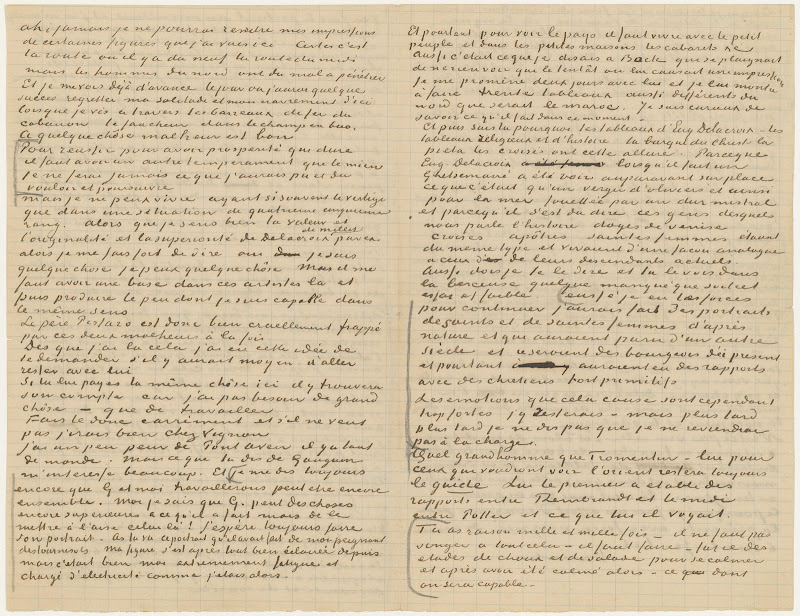 ah, jamais je ne pourrai rendre mes impressions
de certaines figures que j'ai vues ici. Certes c'est
la route où il y a du neuf la route du midi
mais les hommes du nord ont du mal à pénétrer
Et je me vois déjà d'avance le jour où j'aurai quelque
succès regretter ma solitude et mon navrement d'ici
lorsque je vois à travers les barreaux de fer du
cabanon le faucheur dans le champ en bas.
À quelque chose malheur est bon
Pour réussir pour avoir prospérité qui dure
il faut avoir un autre tempérament que le mien
je ne ferai jamais ce que j'aurais pu et dû
vouloir et poursuivre
mais je ne peux vivre ayant si souvent le vertige
que dans une situation de quatrième cinquième
rang. Alors que je sens bien la valeur et
l'originalité et la supériorité de Delacroix
de Millet par ex.
alors je me fais fort de dire oui je suis
quelque chose je peux quelque chose Mais il me
faut avoir une base dans ces artistes là et
puis produire le peu dont je suis capable dans
le même sens
Le père Pissaro est donc bien cruellement frappé
par ces deux malheurs à la fois
Dès que j'ai lu cela j'ai eu cette idée de
te demander s'il y aurait moyen d'aller
rester avec lui
Si tu lui payes la même chose ici il y trouvera
son compte car j'ai pas besoin de grand
chose – que de travailler
Fais le donc carrément et s'il ne veut
pas j'irais bien chez Vignon
j'ai un peu peur de Pont aven il y a tant
de monde. Mais ce que tu dis de Gauguin
m'intéresse beaucoup. Et je me dis toujours
encore que G et moi travaillerons peut être encore
ensemble. Moi je sais que G. peut des choses
encore supérieures à ce qu'il a fait mais de le
mettre à l'aise celui là! j'espère toujours faire
son portrait. As tu vu ce portrait qu'il avait fait de moi peignant
des tournesols. Ma figure s'est après tout bien éclairée depuis
mais c'était bien moi extrêmement fatigué et
chargé d'électricité comme j'étais alors. –
Et pourtant pour voir le pays il faut vivre avec le petit
peuple et dans les petites maisons les cabarets etc
Aussi c'était ce que je disais à Bock qui se plaignait
de ne rien voir que le tentât ou lui causât une impression
je me promène deux jours avec lui et je lui montre
à faire trente tableaux aussi différents du
nord que serait le maroc. Je suis curieux de
savoir ce qu'il fait dans ce moment.
Et puis sais tu pourquoi les tableaux d'Eug Delacroix – les
tableaux religieux et d'histoire la barque du Christ la
pieta les croisés ont cette allure. Parceque
Eug. Delacroix lorsqu'il fait un
Ghetsemané a été voir auparavant sur place
ce que c'était qu'un verger d'oliviers et aussi
pour la mer fouettée par un dur mistral
et parcequ'il s'est dû dire ces gens desquels
nous parle l'histoire doges de venise
croisés apôtres saintes femmes étaient
du même type et vivaient d'une façon analogue
à ceux de leurs descendants actuels.
Aussi dois je te le dire et tu le vois dans
la berceuse quelque manqué que soit cet
essai et faible Eussé je eu les forces
pour continuer j'aurais fait des portraits
de saints et de saintes femmes d'après
nature et qui auraient paru d'un autre
siècle et ce seraient des bourgeois d'à présent
et pourtant auraient eu des rapports
avec des chretiens fort primitifs
Les émotions que cela cause sont cependant
trop fortes j'y resterais – mais plus tard
plus tard je ne dis pas que je ne reviendrai
pas à la charge.
Quel grand homme que Fromentin – lui pour
ceux qui voudront voir l'orient restera toujours
le guide Lui le premier a établi des
rapports entre Rembrandt et le midi
entre Potter et ce que lui voyait.
Tu as raison mille et mille fois – il ne faut pas
songer à tout cela – il faut faire – fut ce des
études de choux et de salade pour se calmer
et après avoir été calmé alors – ce dont
on sera capable. –